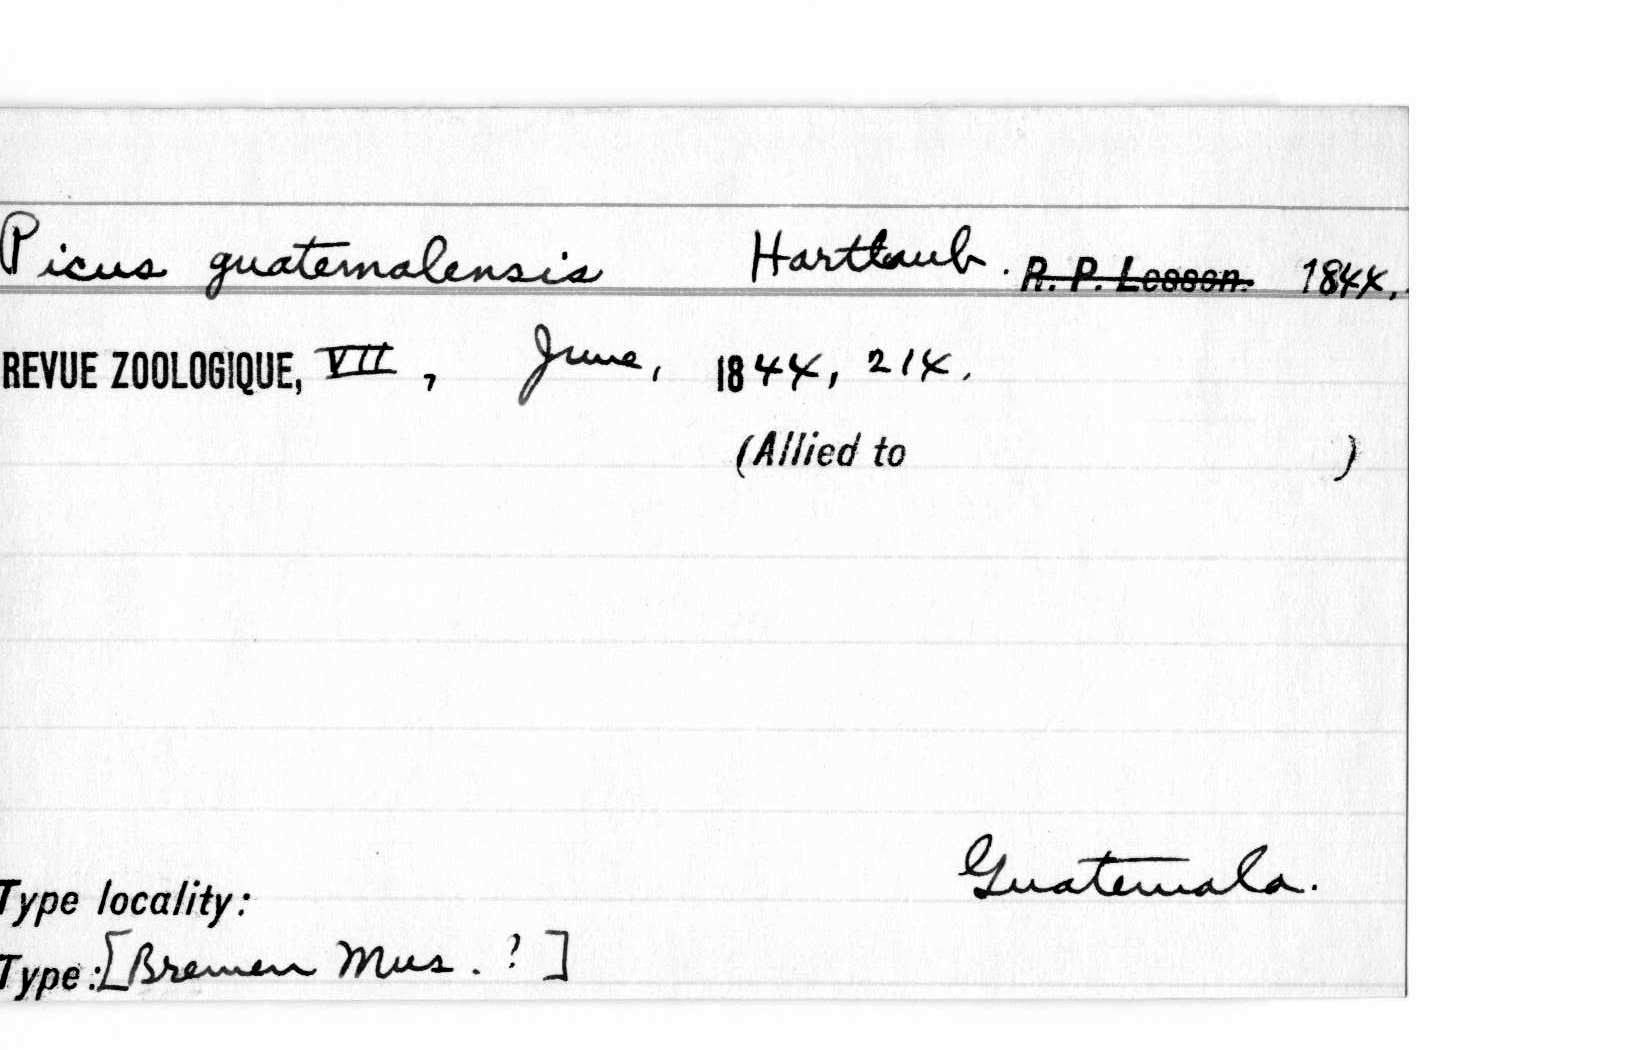 Picus guatemalensis Hartlaub. R. P. Lesson. 1844.
REVUE ZOOLOGIQUE, VII, June, 1844, 214.
(Allied to )
Guatemala.
Type locality:
Type: [Bremen Mus. ?]